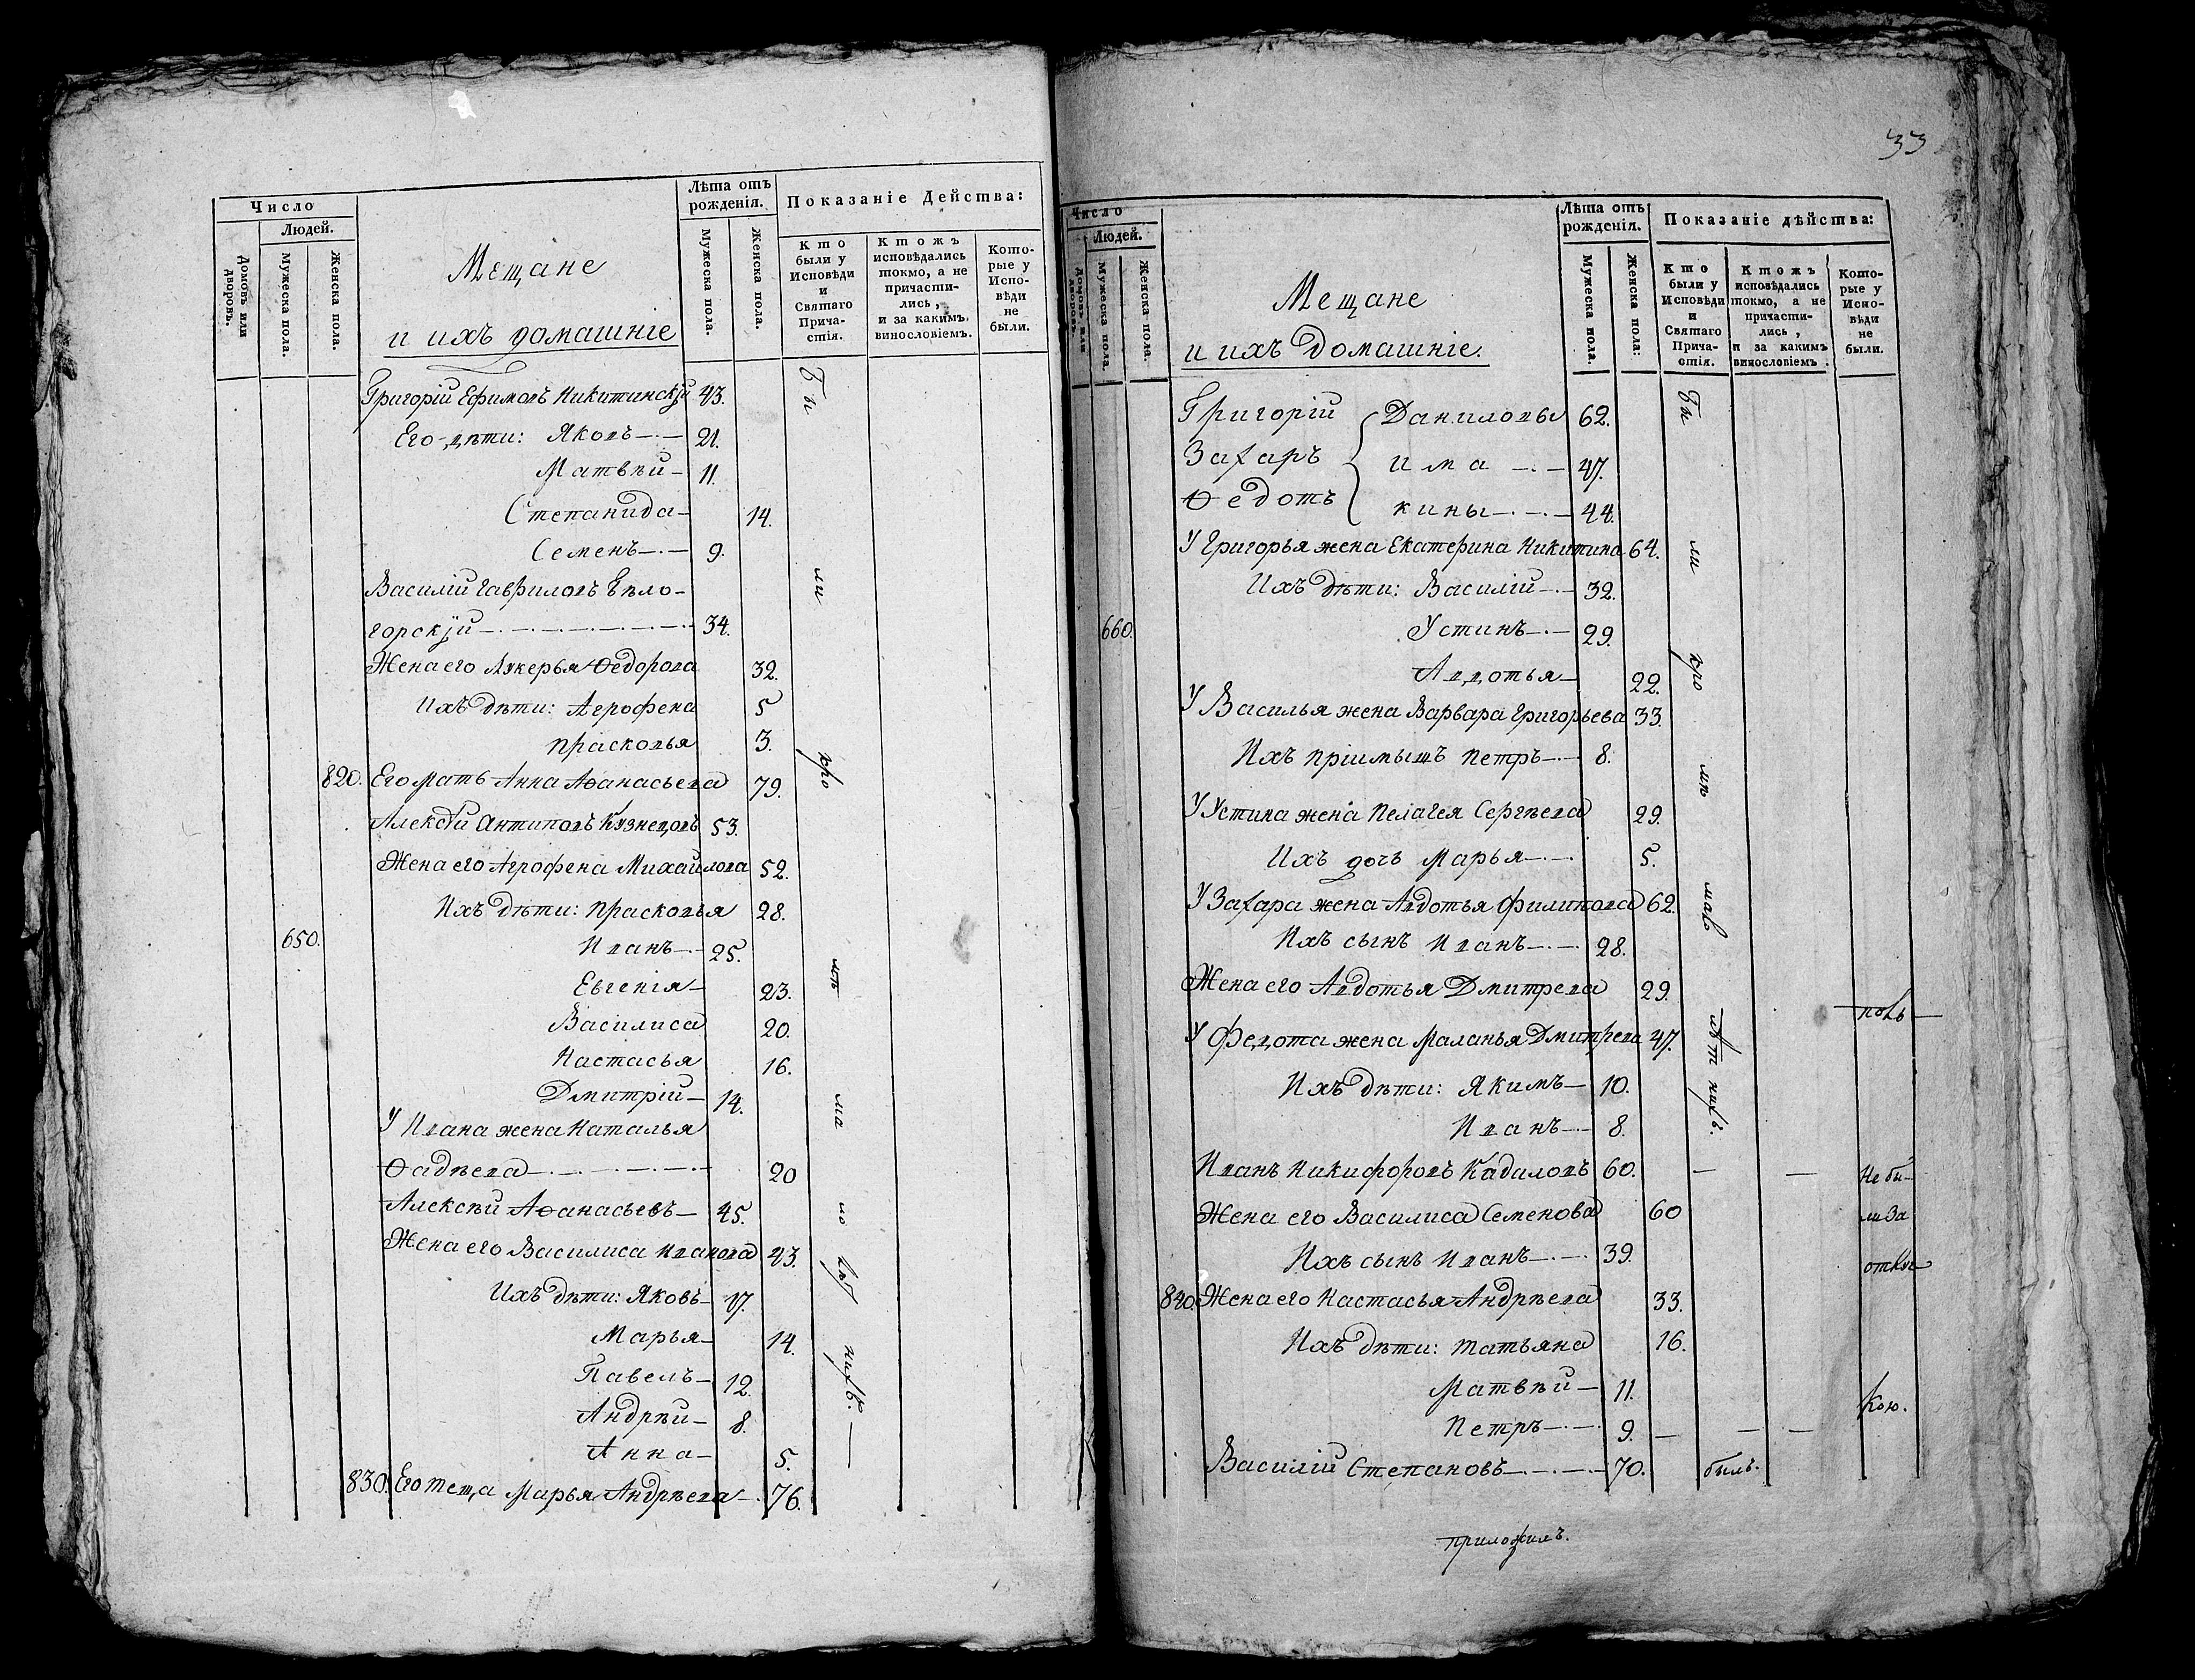 Число
Людей.
Домовъ или дворовъ.
Мужеска пола.
Женска пола.
Мещане
и ихъ домашніе
Лѣта отъ рожденія.
Мужеска пола.
Женска пола.
Показаніе Действа:
Кто были у Исповѣди и Святаго Прича-стія.
Ктожъ исповѣдались токмо, а не причасти-лись, и за какимъ винословіемъ.
Кото-рые у Испо-вѣди не были.
Григорій Ефимовъ Никитинскій 43.
Его дѣти: Яковъ 21.
Матвѣй 11.
Степанида 14.
Семенъ 9.
Василій Гавриловъ Бѣло-
горскій 34.
Жена его Лукерья Ѳедорова 32.
Ихъ дѣти: Агрофена 5
Прасковья 3.
820. Его мать Анна Аѳанасьева 79.
Алексѣй Антиповъ Кузнецовъ 53.
Жена его Агрофена Михайлова 52.
Ихъ дѣти: Прасковья 28.
650. Иванъ 25.
Евгенія 23.
Василиса 20.
Настасья 16.
Дмитрій 14.
У Ивана жена Наталья
Ѳадѣева 20
Алексѣй Аѳанасьевъ 45.
Жена его Василиса Иванова 43.
Ихъ дѣти: Яковъ 17.
Марья 14.
Павелъ 12.
Андрѣй 8.
Анна 5.
830. Его теща Марья Андрѣева 76.
Бы
ли
кро
мѣ
ма
ло
лѣт
нихъ.
33
Число
Людей.
Домовъ или дворовъ.
Мужеска пола.
Женска пола.
Мещане
и ихъ домашніе.
Лѣта отъ рожденія.
Мужеска пола.
Женска пола:
Показаніе дѣйства:
Кто были у Исповѣди и Святаго Прича-стія.
Ктожъ исповѣдались токмо, а не причасти-лись, и за какимъ винословіемъ.
Кото-рые у Испо-вѣди не были.
Григорій Даниловы 62.
Захаръ има 47.
Ѳедотъ кины 44.
У Григорья жена Екатерина Никитина 64.
Ихъ дѣти: Василій 32.
660. Устинъ 29.
Авдотья 22.
У Василья жена Варвара Григорьева 33.
Ихъ пріимышъ Петръ 8.
У Устина жена Пелагея Сергѣева 29.
Ихъ дочь Марья 5.
У Захара жена Авдотья Филипова 62.
Ихъ сынъ Иванъ 28.
Жена его Авдотья Дмитрева 29.
У Федота жена Маланья Дмитрева 47.
Ихъ дѣти: Якимъ 10.
Иванъ 8.
Иванъ Никифоровъ Кадиловъ 60.
Жена его Василиса Семенова 60
Ихъ сынъ Иванъ 39.
840. Жена его Настасья Андрѣева 33.
Ихъ дѣти: Татьяна 16.
Матвѣй 11.
Петръ 9.
Василій Степановъ 70. былъ.
Бы
ли
кро
мѣ
мал
лѣт
нихъ.
Не бы-
ли за
отлуч
кою.
приложилъ.